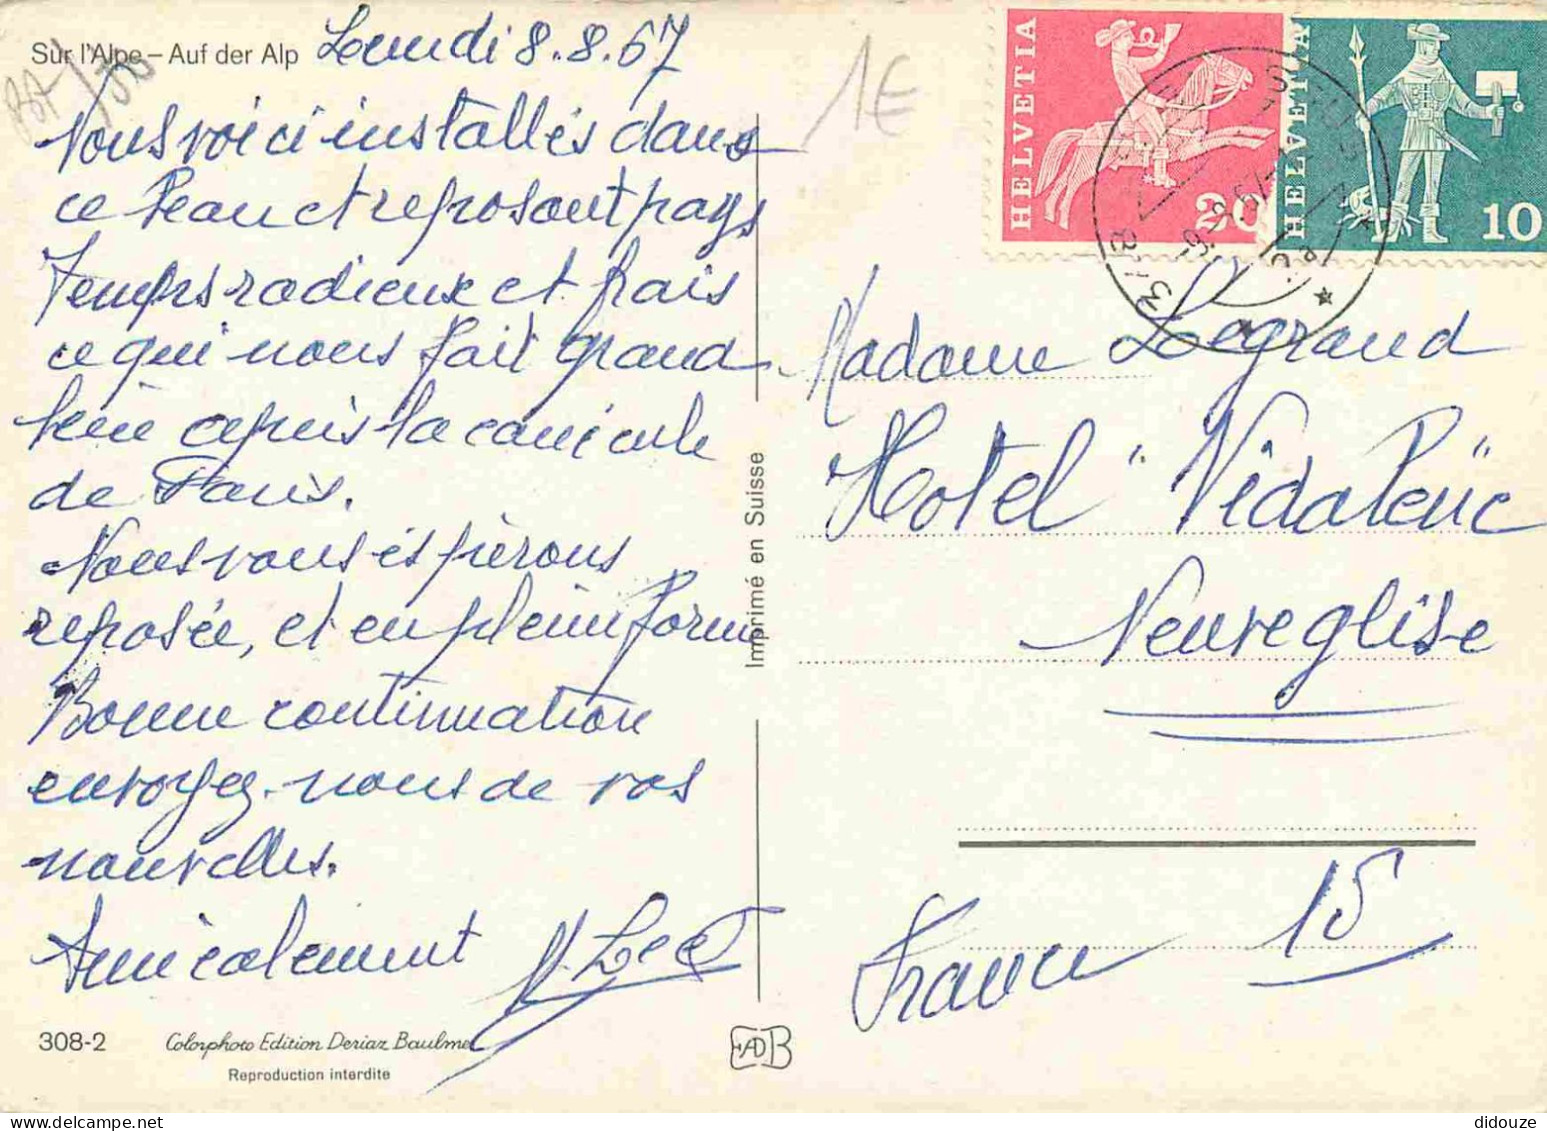 Sur l'Alpe – Auf der Alp
Lundi 8.8.67
1E
Nous voici installés dans
ce beau et reposant pays
Temps radieux et frais
ce qui nous fait grand
bien après la canicule
de Paris.
Nous vous espèrons
reposée, et en pleine forme
Bonne continuation
envoyez-nous de vos
nouvelles.
Amicalement
308-2
Colorphoto Edition Deriaz Baulmes
Reproduction interdite
Imprimé en Suisse
HELVETIA
20
HELVETIA
10
Madame Legrand
Hotel "Vidalenc
Neuveglise
France 15
didouze